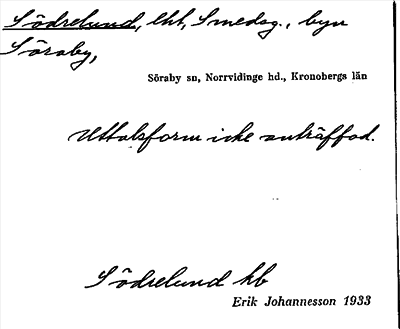 Södrelund, lht, Smedsg., byn
Söraby,
Söraby sn, Norrvidinge hd., Kronobergs län
Uttalsform icke anträffad.
Södrelund hb
Erik Johannesson 1933